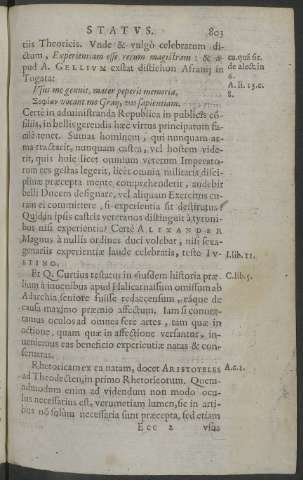 STATVS. 803
tiis Theoricis. Vnde & vulgò celebratum di-
ctum, Experientiam esse rerum magistram: & a-
pud A. GELLIVM exstat distichon Afranij in
Togata:
Vsus me genuit, mater peperit memoria,
Sophiam vocant me Graij, vos sapientiam.
Certè in administranda Republica in publicis cõ-
siliis, in bellis gerendis hæc virtus principatum fa-
cilè tenet. Sumas hominem, qui nunquam ar-
ma tractarit, nunquam castra, vel hostem vide-
rit, quis huic licet omnium veterum Imperato-
rum res gestas legerit, licet omnia militaris disci-
plinæ præcepta mente comprehenderit, audebit
belli Ducem designare, vel aliquam Exercitus cu-
ram ei committere, si experientia sit destitutus?
Quid in ipsis castris veteranos distinguit à tyroni-
bus nisi experientia? Certè ALEXANDER
Magnus à nullis ordines duci volebat, nisi sexa-
genariis experientiæ laude celebratis, teste IV-
STINO.
Et Q. Curtius testatur in eiusdem historia præ-
lium à iunenibus apud Halicarnassum omissum ab
Atharhia seniore fuisse redaccensum, eáque de
causa maximo præmio affectum. Iam si conuer-
tamus oculos ad omnes fere artes, tam quæ in
actione, quam quæ in affectione versantur, in-
ueniemus eas beneficio experientiæ natas & con-
seruatas.
Rhetoricam ex ea natam, docet ARISTOTELES
ad Theodecten, in primo Rhetoricorum. Quem-
admodum enim ad videndum non modo ocu-
lus necessarius est, verumetiam lumen, sic in arti-
bus nõ solùm necessaria sunt præcepta, sed etiam
Eee 2 vsus
cu. quã sit.
de alect. in
6.
A. li. 13. c.
8.
I. lib. 11.
C. lib. 5.
A. c. 1.